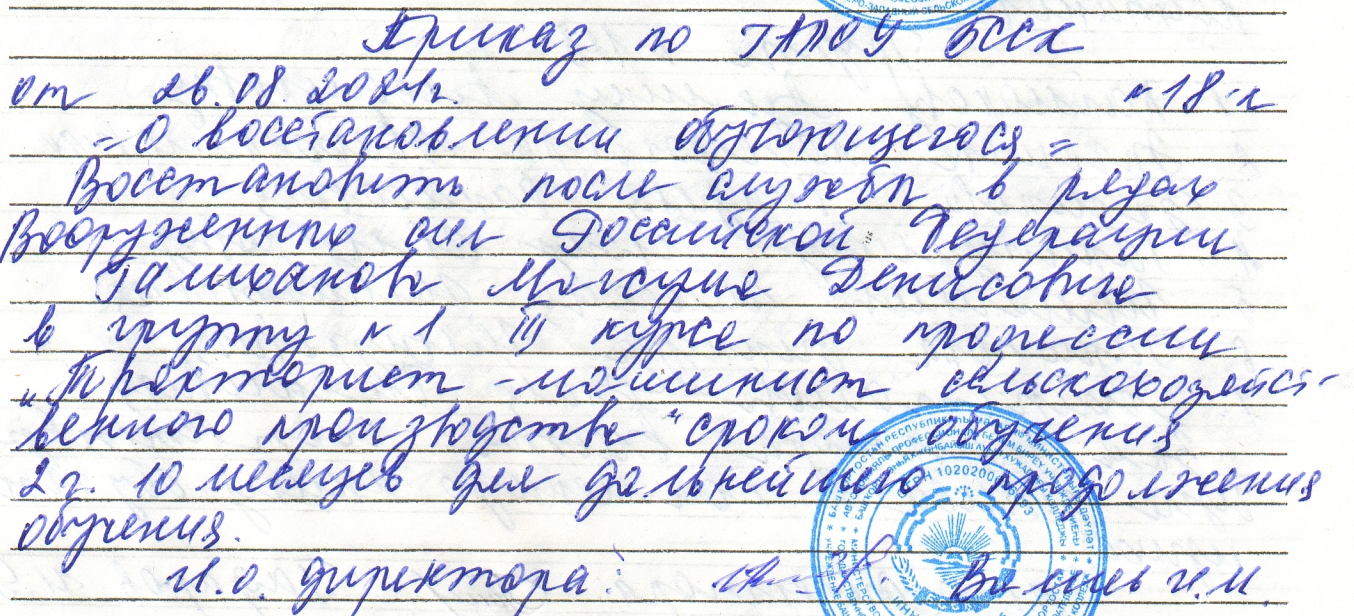 Приказ по ГАПОУ БССК
от 26.08.2021г. №18-л
= О восстановлении обучающегося =
Восстановить после службы в рядах
Вооруженных сил Российской Федерации
Галиханова Максума Денисовича
в группу №1 III курса по профессии
"Тракторист - машинист сельскохозяйст-
венного производства" сроком обучения
2 г. 10 месяцев для дальнейшего продолжения
обучения.
И.о. директора: Валиев И.М.